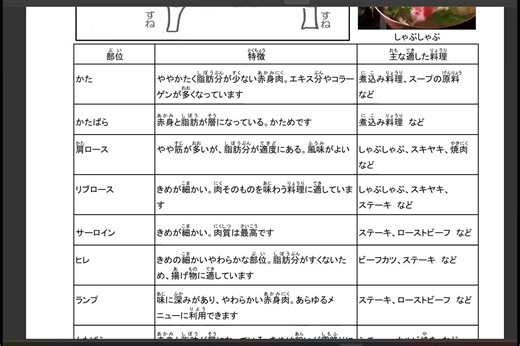 すね
すね
しゃぶしゃぶ
部位 特徴 主な適した料理
かた ややかたく脂肪分が少ない赤身肉。エキス分やコラーゲンが多くなっています 煮込み料理、スープの原料 など
かたばら 赤身と脂肪が層になっている。かためです 煮込み料理 など
肩ロース やや筋が多いが、脂肪分が適度にある。風味がよい しゃぶしゃぶ、スキヤキ、焼肉 など
リブロース きめが細かい。肉そのものを味わう料理に適しています しゃぶしゃぶ、スキヤキ、ステーキ など
サーロイン きめが細かい。肉質は最高です ステーキ、ローストビーフ など
ヒレ きめの細かいやわらかな部位。脂肪分がすくないため、揚げ物に適しています ビーフカツ、ステーキ など
ランプ 味に深みがあり、やわらかい赤身肉。あらゆるメニューに利用できます ステーキ、ローストビーフ など